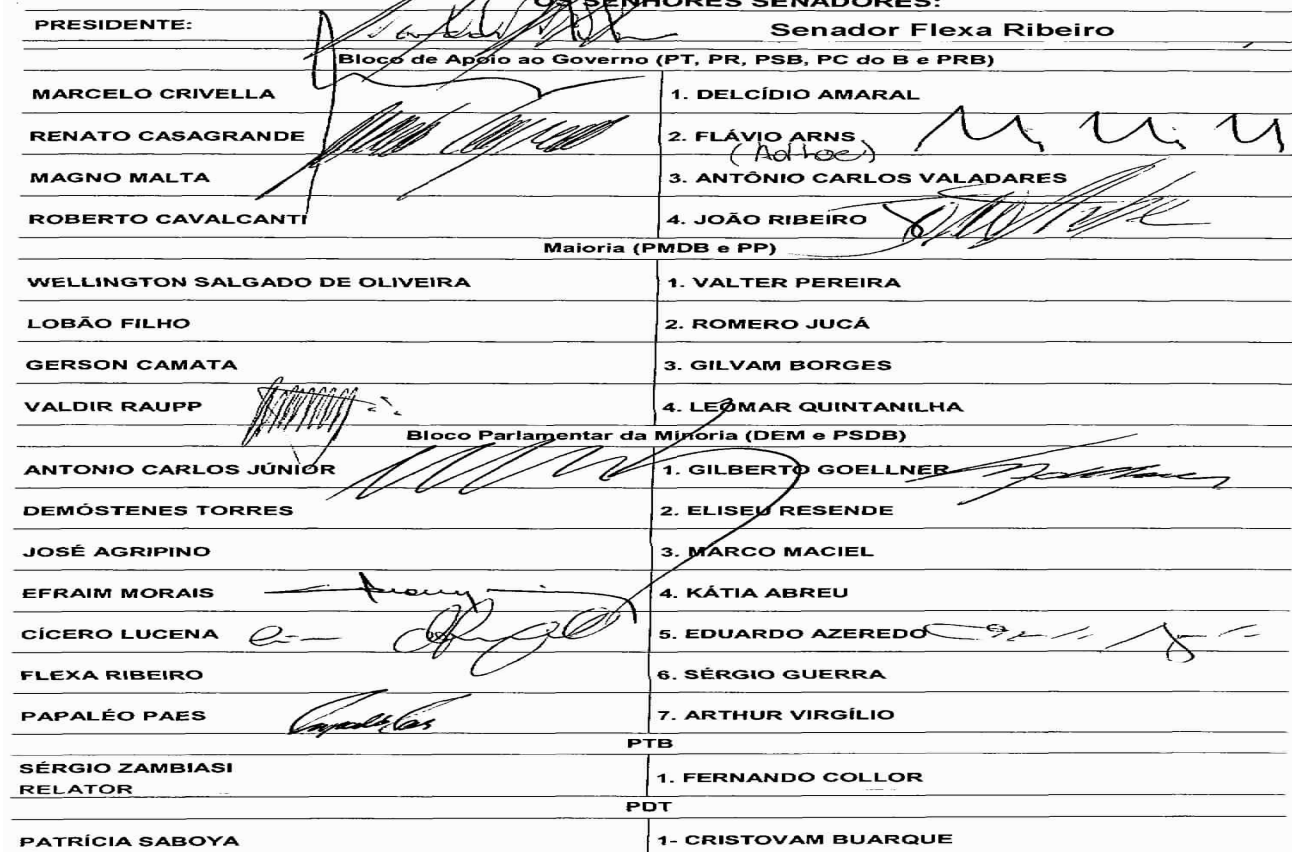 OS SENHORES SENADORES:
PRESIDENTE: Senador Flexa Ribeiro
Bloco de Apoio ao Governo (PT, PR, PSB, PC do B e PRB)
MARCELO CRIVELLA 1. DELCÍDIO AMARAL
RENATO CASAGRANDE 2. FLÁVIO ARNS
(Adhoc)
MAGNO MALTA 3. ANTÔNIO CARLOS VALADARES
ROBERTO CAVALCANTI 4. JOÃO RIBEIRO
Maioria (PMDB e PP)
WELLINGTON SALGADO DE OLIVEIRA 1. VALTER PEREIRA
LOBÃO FILHO 2. ROMERO JUCÁ
GERSON CAMATA 3. GILVAM BORGES
VALDIR RAUPP 4. LEOMAR QUINTANILHA
Bloco Parlamentar da Minoria (DEM e PSDB)
ANTONIO CARLOS JÚNIOR 1. GILBERTO GOELLNER
DEMÓSTENES TORRES 2. ELISEU RESENDE
JOSÉ AGRIPINO 3. MARCO MACIEL
EFRAIM MORAIS 4. KÁTIA ABREU
CÍCERO LUCENA 5. EDUARDO AZEREDO
FLEXA RIBEIRO 6. SÉRGIO GUERRA
PAPALÉO PAES 7. ARTHUR VIRGÍLIO
PTB
SÉRGIO ZAMBIASI 1. FERNANDO COLLOR
RELATOR
PDT
PATRÍCIA SABOYA 1- CRISTOVAM BUARQUE